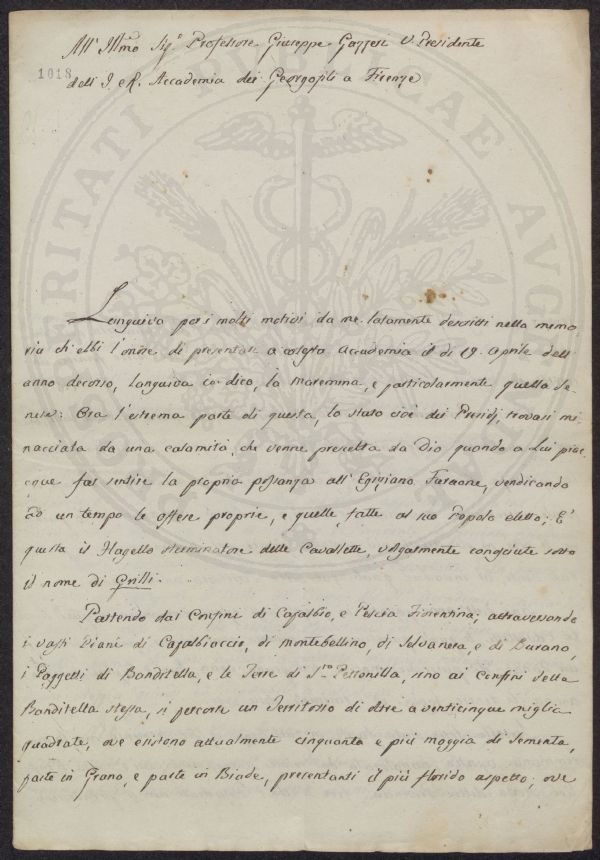 All' Ill.mo Sig.r Professore Giuseppe Gazzeri V. Presidente
1018
dell' I. e R. Accademia dei Georgofili a Firenze
Languiva per i molti motivi da me latamente descritti nella memo
ria ch' ebbi l'onore di presentare a cotesta Accademia il dì 19. Aprile dell'
anno decorso, languiva io dico, la maremma, e particolarmente quella Se-
nese: Ora l'estrema parte di questa, lo stato cioè dei Presidj, trovasi mi-
nacciata da una calamità, che venne prescelta da Dio quando a Lui piac-
cque far sentire la propria possanza all' Egiziano Faraone, vendicando
ad un tempo le offese proprie, e quelle, fatte al suo Popolo eletto; E'
questa il flagello sterminatore delle Cavallette, volgarmente conosciute sotto
il nome di Grilli.
Partendo dai Confini di Capalbio, e Pescia Fiorentina; attraversando
i vasti Piani di Capalbiaccio, di Montebellino, di Selvanera, e di Burano,
i Poggetti di Banditella, e le Terre di S.ta Petronilla, sino ai Confini della
Banditella stessa, si percorre un Territorio di oltre a venticinque miglia
quadrate, ove esistono attualmente cinquanta e più moggia di Sementa,
parte in Grano, e parte in Biade, presentanti il più florido aspetto; ove